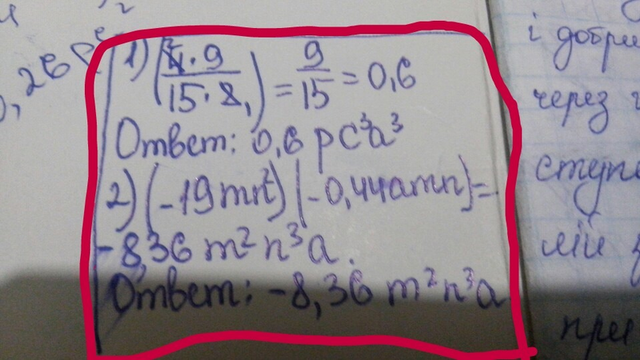 1) (4·9 / 15·8) = 9/15 = 0,6
Ответ: 0,6 pc³a³
2) (-19mn²)(-0,44amn)=
-8,36 m²n³a.
Ответ: -8,36 m²n³a
і добри
через
ступе
при